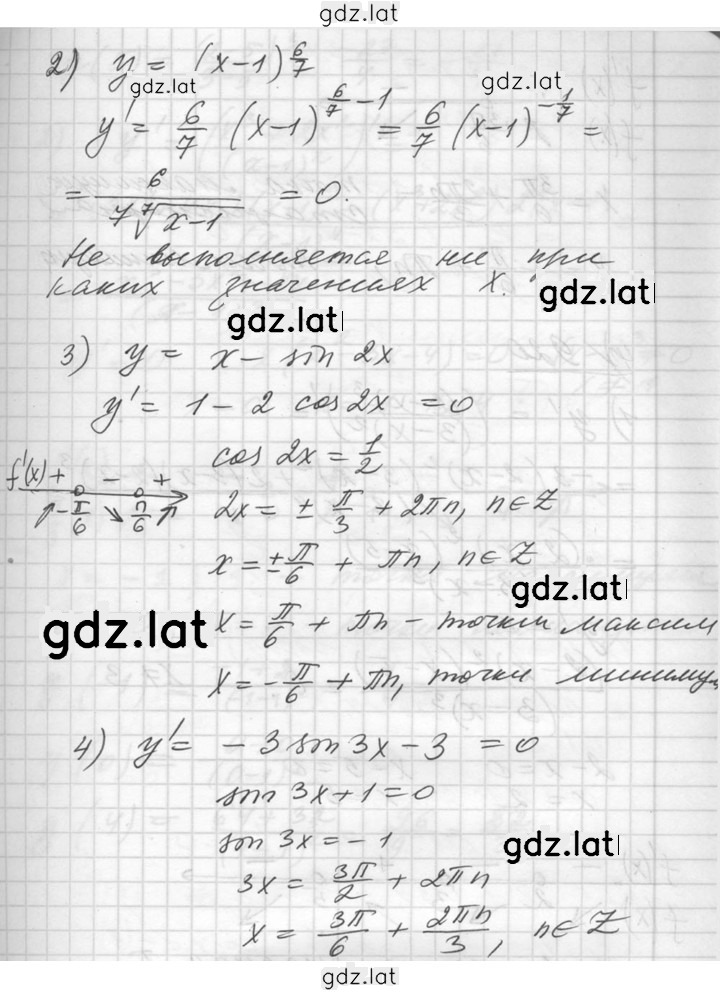 gdz.lat
2) y = (x-1)^{6/7}
gdz.lat gdz.lat
y' = 6/7 (x-1)^{6/7 - 1} = 6/7 (x-1)^{-1/7} =
= 6/(7 ⁷√(x-1)) = 0.
Не выполняется ни при
каких значениях x.
gdz.lat
gdz.lat
3) y = x - sin 2x
y' = 1 - 2 cos 2x = 0
cos 2x = 1/2
f'(x) + - +
-π/6 π/6
↗ ↘ ↗
2x = ± π/3 + 2πn, n∈Z
x = ± π/6 + πn, n∈Z
gdz.lat
gdz.lat
x = π/6 + πn - точки максим
x = -π/6 + πn, точки миниму
4) y' = -3 sin 3x - 3 = 0
sin 3x + 1 = 0
sin 3x = -1
gdz.lat
3x = 3π/2 + 2πn
x = 3π/6 + 2πn/3, n∈Z
gdz.lat